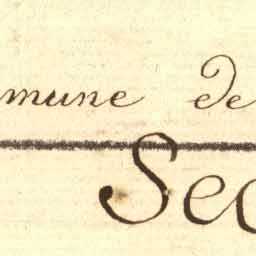 mune de
Sec